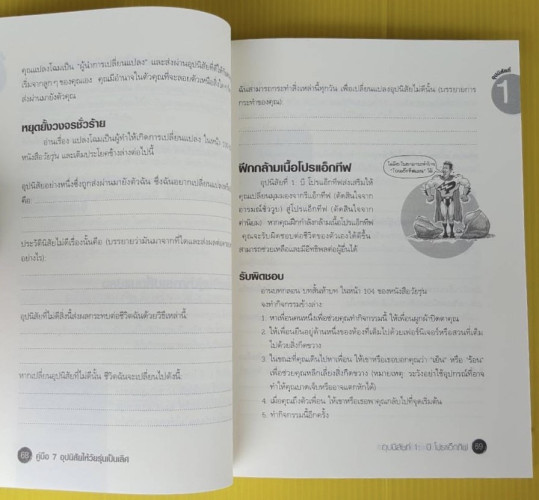 คุณแปลงโฉมเป็น "ผู้นำการเปลี่ยนแปลง" และส่งผ่านอุปนิสัยที่ดีให้
เริ่มจากลูกๆ ของคุณเอง คุณมีอำนาจในตัวคุณที่จะลอยตัวเหนือสิ่ง
ส่งผ่านมายังตัวคุณ
หยุดยั้งวงจรชั่วร้าย
อ่านเรื่อง แปลงโฉมเป็นผู้ทำให้เกิดการเปลี่ยนแปลง ในหน้า
หนังสือวัยรุ่น และเติมประโยคข้างล่างต่อไปนี้
อุปนิสัยอย่างหนึ่งซึ่งถูกส่งผ่านมายังตัวฉัน ซึ่งฉันอยากเปลี่ยนแปลง
คือ
ประวัตินิสัยไม่ดีเรื่องนั้นคือ (บรรยายว่ามันมาจากที่ใดและส่งผล
อย่างไร)
อุปนิสัยที่ไม่ดีสิ่งนี้ส่งผลกระทบต่อชีวิตฉันด้วยวิธีเหล่านี้
หากเปลี่ยนอุปนิสัยที่ไม่ดีนั้น ชีวิตฉันจะเปลี่ยนไปดังนี้
68 คู่มือ 7 อุปนิสัยให้วัยรุ่นเป็นเลิศ
อุปนิสัยที่
1
ฉันสามารถกระทำสิ่งเหล่านี้ทุกวัน เพื่อเปลี่ยนแปลงอุปนิสัยไม่ดีนั้น (บรรยายการ
กระทำของคุณ)
ฝึกกล้ามเนื้อโปรแอ็กทีฟ
อุปนิสัยที่ 1 บี โปรแอ็กทีฟส่งเสริมให้
คุณเปลี่ยนมุมมองจากรีแอ็กทีฟ (ตัดสินใจจาก
อารมณ์ชั่ววูบ) สู่โปรแอ็กทีฟ (ตัดสินใจจาก
ค่านิยม) หากคุณฝึกกำลังกล้ามเนื้อโปรแอ็กทีฟ
คุณจะรับผิดชอบต่อชีวิตของตัวเองได้ดีขึ้น
สามารถช่วยเหลือและมีอิทธิพลต่อผู้อื่นได้
รับผิดชอบ
ในหน้า 104 ของหนังสือวัยรุ่น
จงทำกิจกรรมข้างล่าง
1. หาเพื่อนคนหนึ่งเพื่อช่วยคุณทำกิจกรรมนี้ ให้เพื่อนผูกผ้าปิดตาคุณ
2. ให้เพื่อนยืนอยู่ด้านหนึ่งของห้องที่เต็มไปด้วยเฟอร์นิเจอร์หรือสวนที่เต็ม
ไปด้วยสิ่งกีดขวาง
3. ในขณะที่คุณเดินไปหาเพื่อน ให้เขาหรือเธอบอกคุณว่า "เย็น" หรือ "ร้อน"
เพื่อช่วยคุณหลีกเลี่ยงสิ่งกีดขวาง (หมายเหตุ: ระวังอย่าใช้อุปกรณ์ที่อาจ
ทำให้คุณบาดเจ็บหรืออาจแตกหักได้)
4. เมื่อคุณถึงตัวเพื่อน ให้เขาหรือเธอพาคุณกลับไปที่จุดเริ่มต้น
5. ทำกิจกรรมนี้อีกครั้ง
อุปนิสัยที่ 1 บี โปรแอ็กทีฟ 69